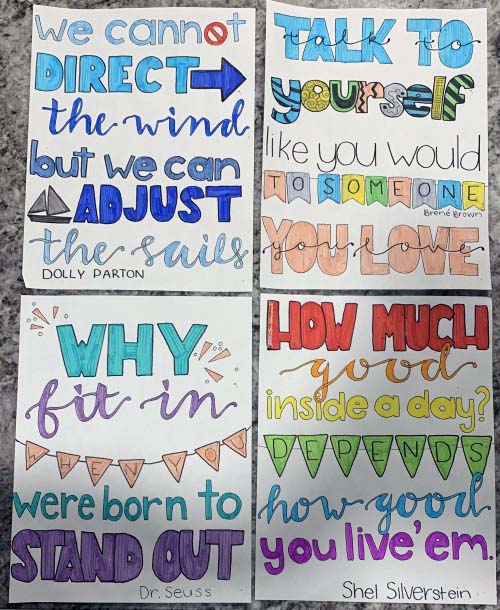 we cannot
DIRECT
the wind
but we can
ADJUST
the sails
DOLLY PARTON
TALK TO
talk to
yourself
like you would
TO SOMEONE
Brené Brown
YOU LOVE
you love
WHY
fit in
WHEN YOU
were born to
STAND OUT
Dr. Seuss
HOW MUCH
good
inside a day?
DEPENDS
how good
you live'em.
Shel Silverstein